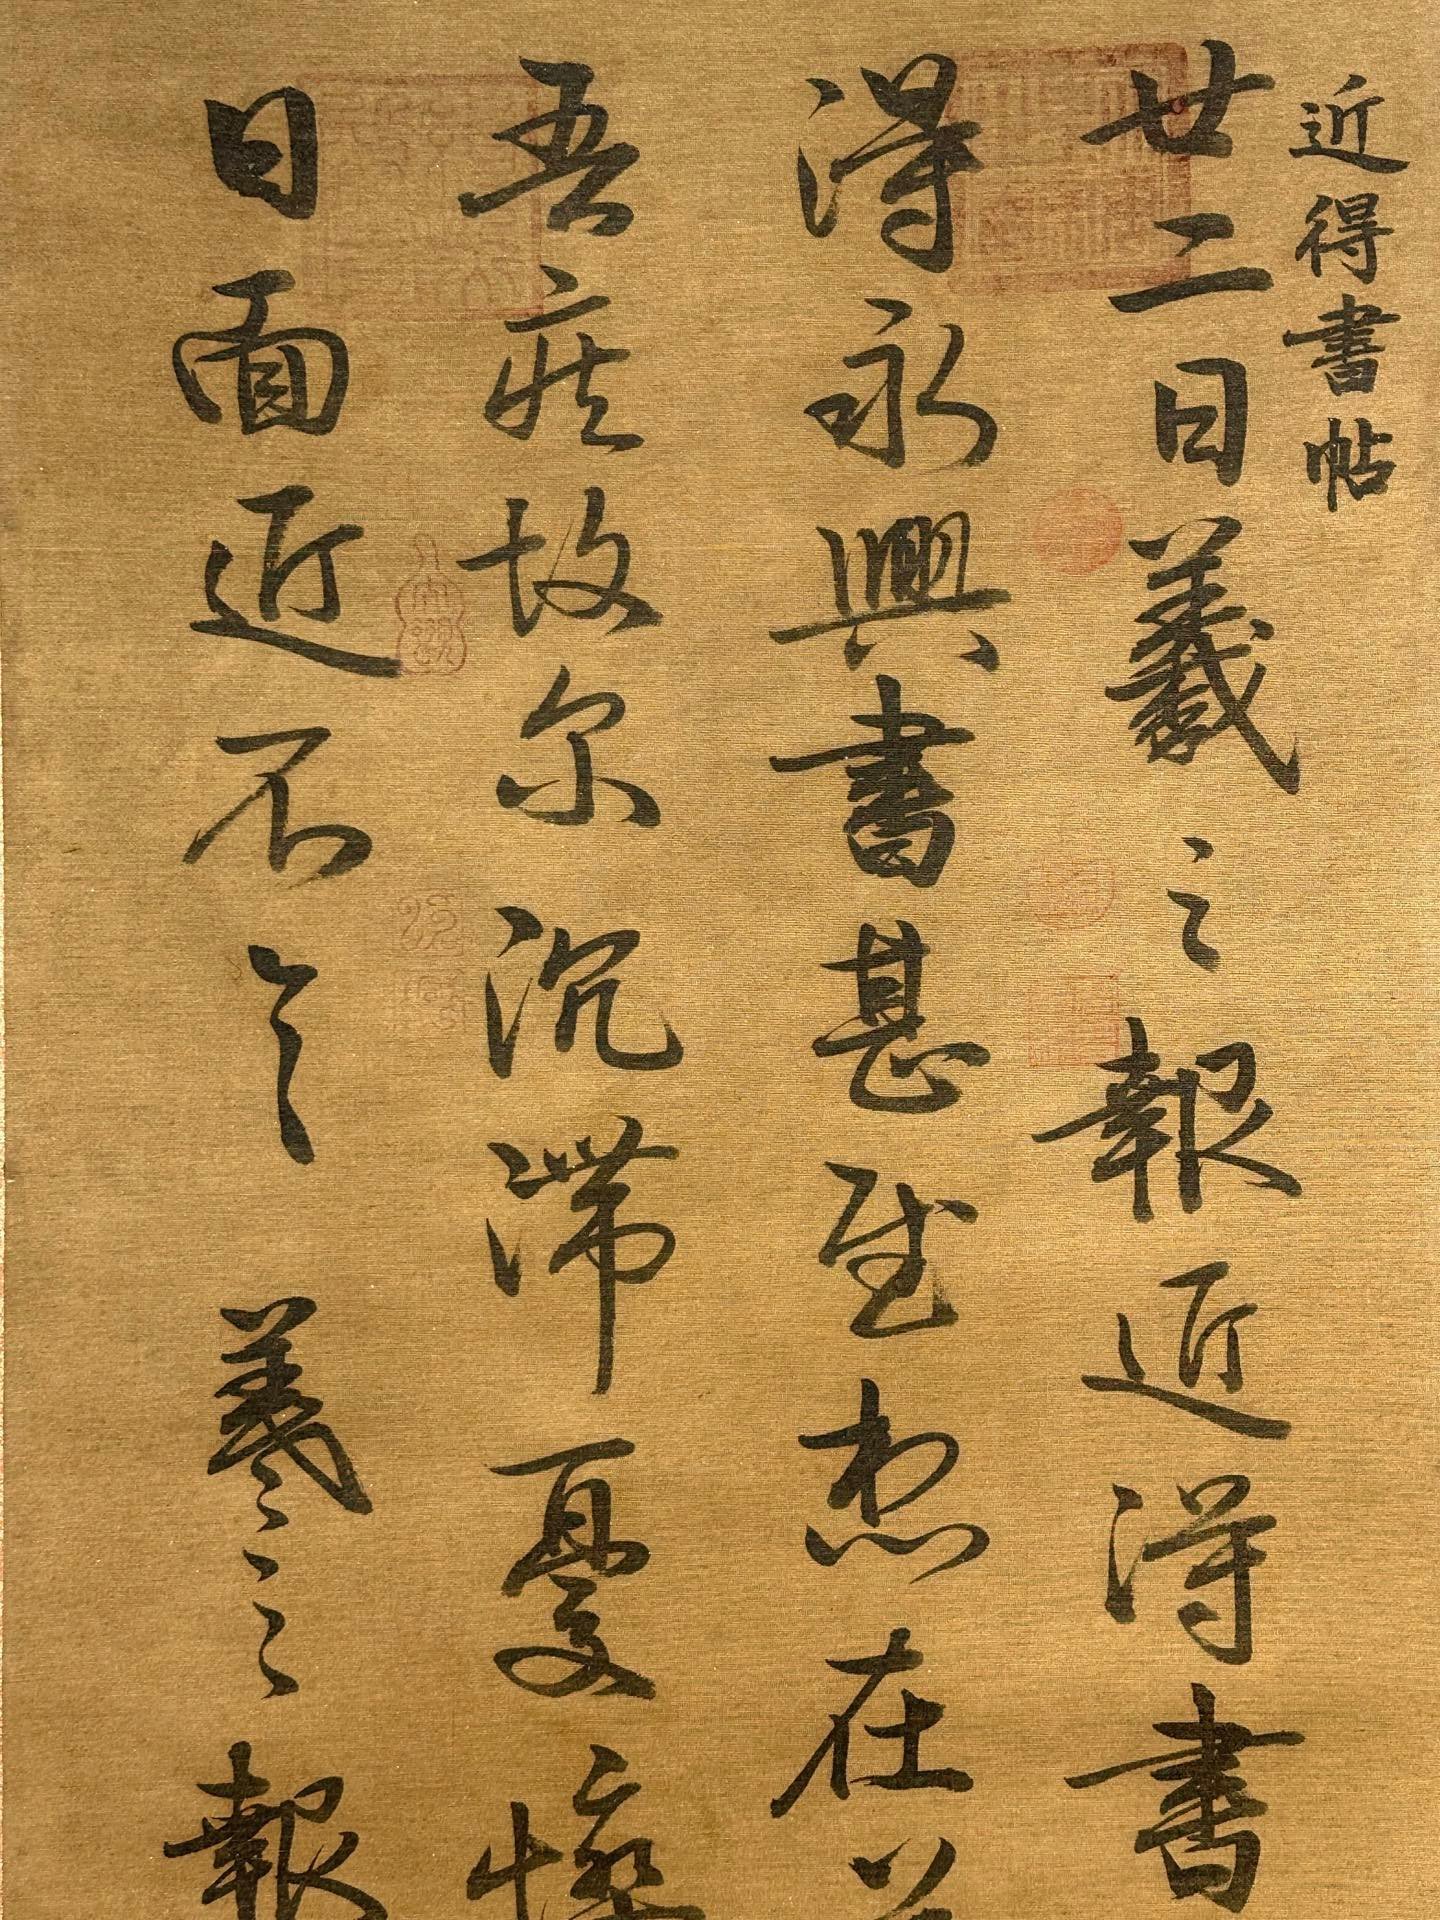 近得書帖
廿二日羲之報近得書
得永興書甚慰想在
吾疾故尔沉滯憂悴
日面近不具羲之報